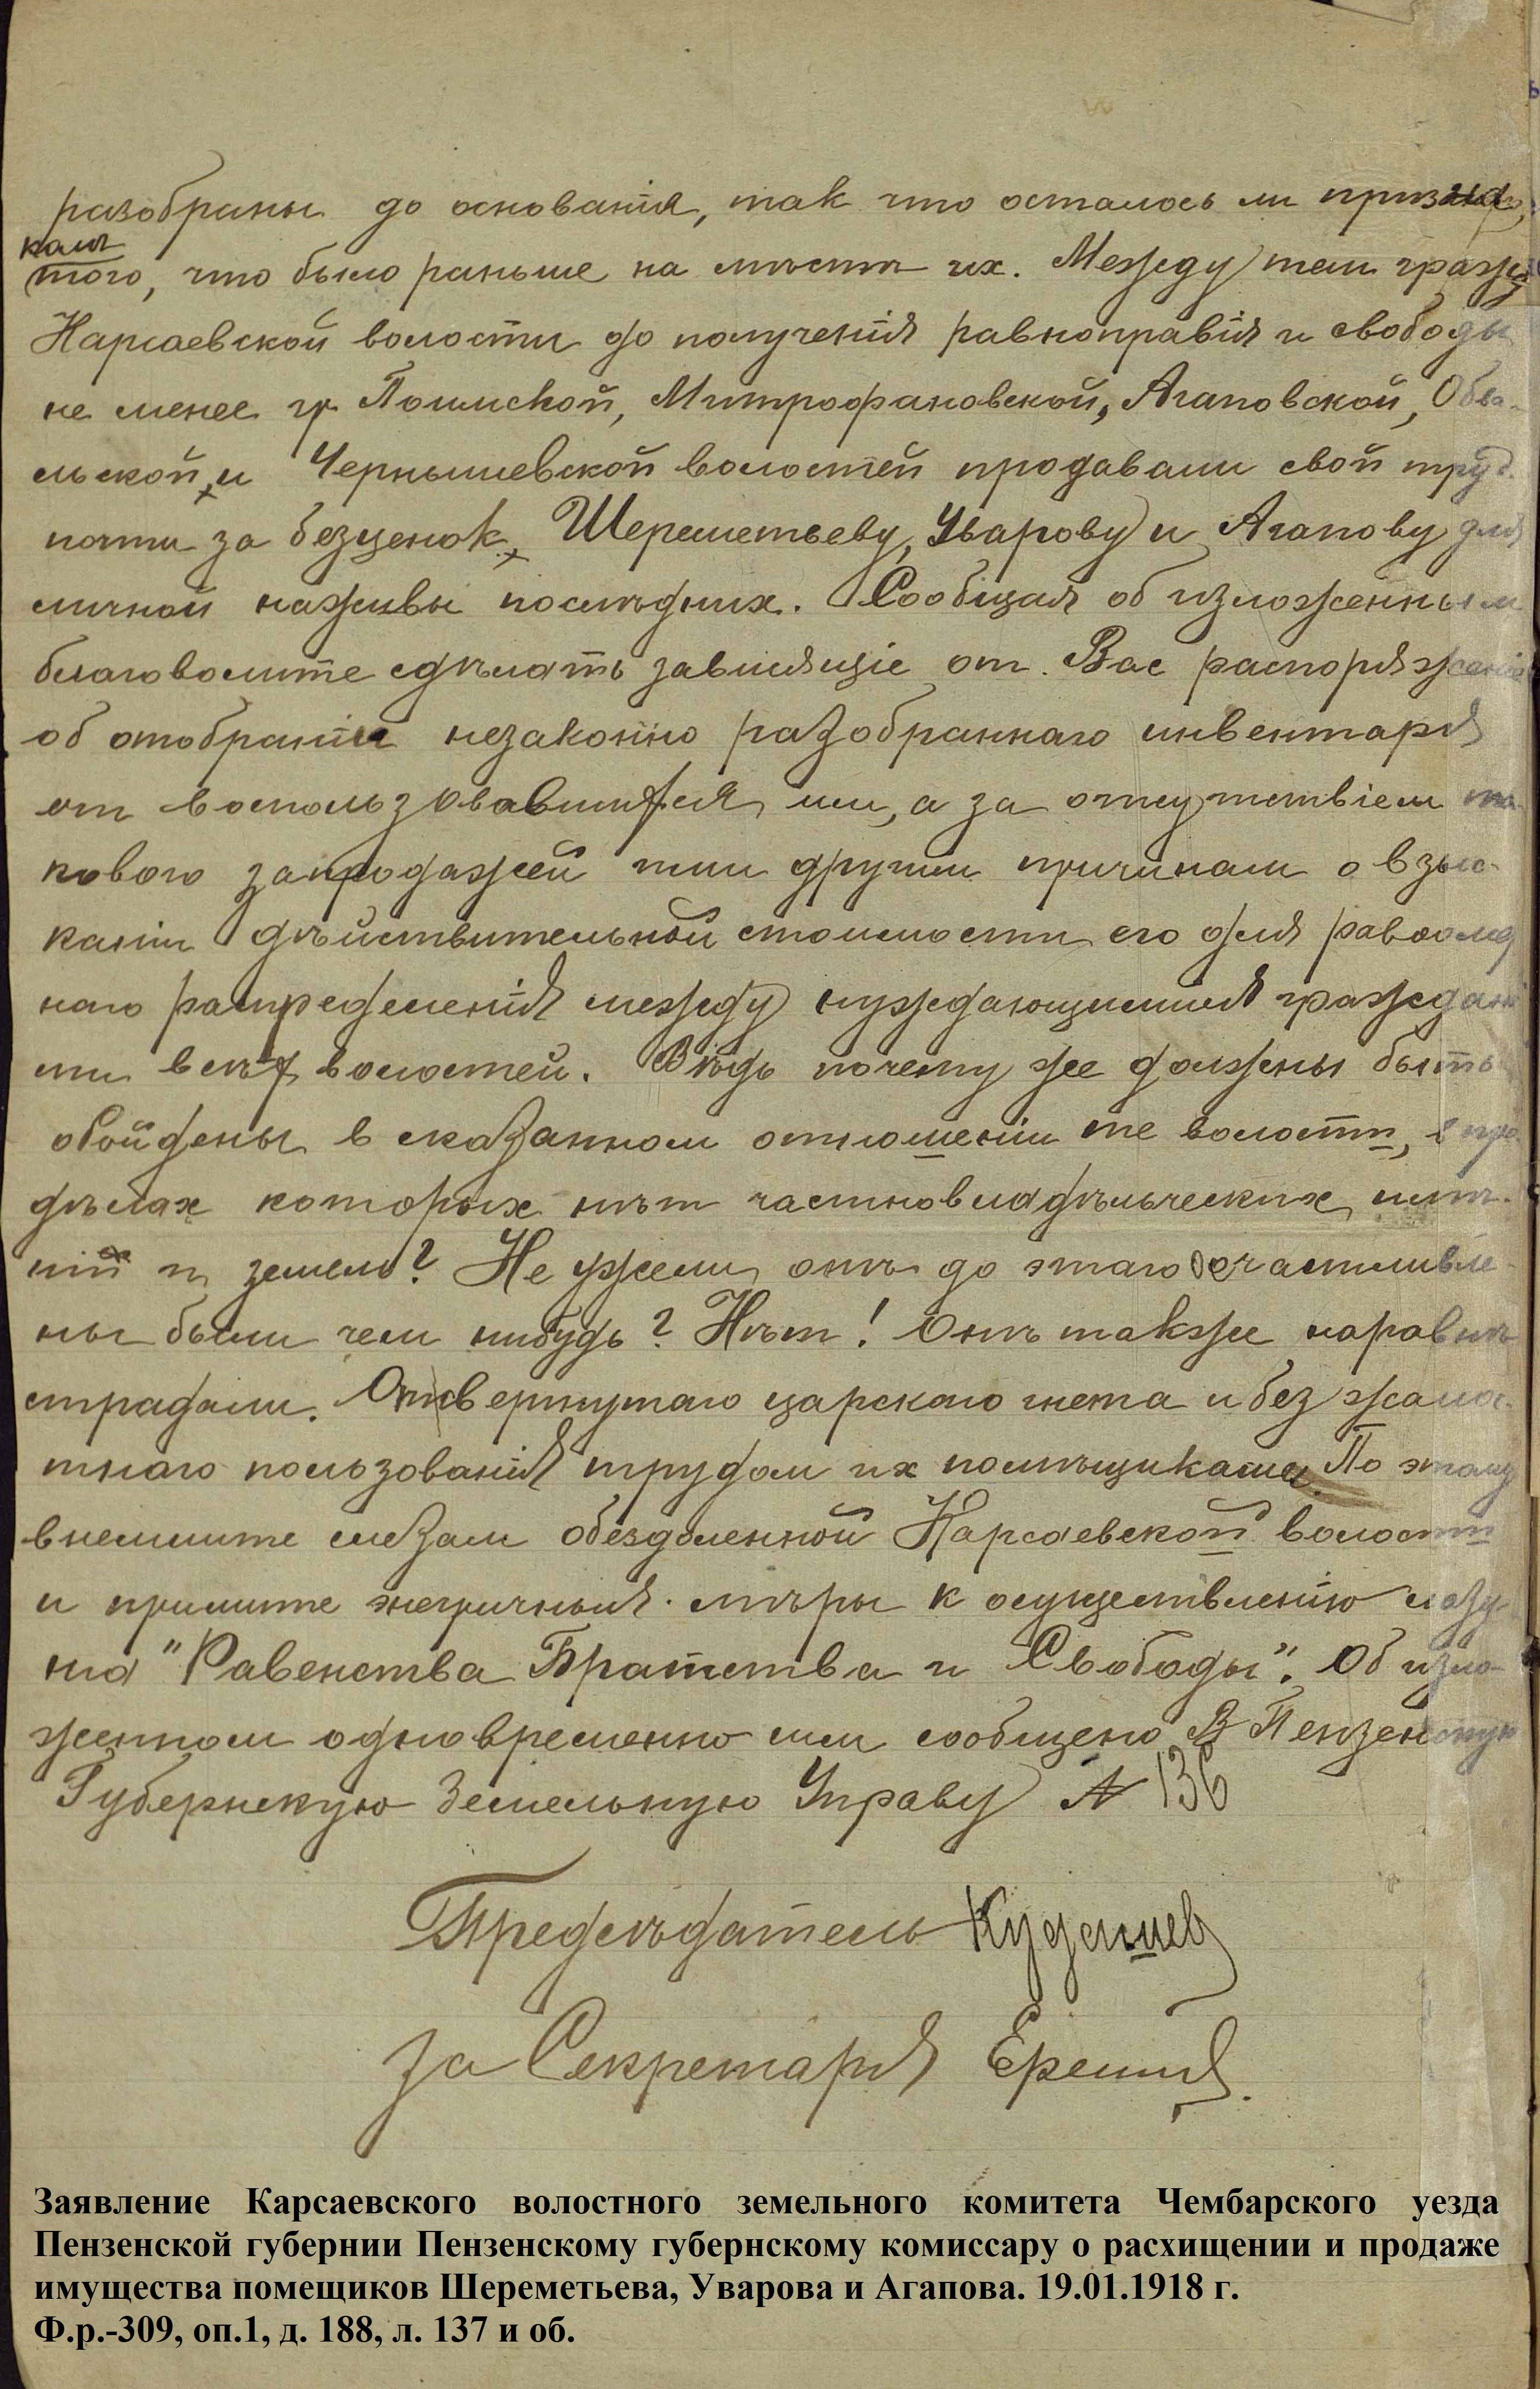 разобраны до основанія, так что осталось ли призна
каи
того, что было раньше на мѣстѣ их. Между тем граж
Карсаевской волости до полученія равноправія и свободы
не менее гр. Поимской, Митрофановской, Агаповской, Обва-
льской, и Чернышевской волостей продавали свой труд
почти за безценок, Шереметьеву, Уварову и Агапову для
личной наживы послѣдних. Сообщая об изложенным
благоволите сдѣлать зависящіе от Вас распоряженіе
об отобраніи незаконно разобраннаго инвентаря
от воспользовавшихся им, а за отсутствіем та-
кового запродажей или другим причинам о взыс-
каніи дѣйствительной стоимости его для равномѣр
наго распределенія между нуждающимися граждана
ми всѣх волостей. Вѣдь почему же должны быть
обойдены в сказанном отношеніи те волости, в пре
дѣлах которых нѣт частновладѣльческих имѣ-
ній и земель? Не ужели онѣ до этаго осчастливле-
ны были чем нибудь? Нѣт! Онѣ также наравнѣ
страдали. От свергнутаго царскаго гнета и безжалос-
тнаго пользованія трудом их помѣщиками. По этому
внемлите слезам обездоленной Карсаевской волости
и примите энергичныя мѣры к осуществленію лозу-
нга "Равенства Братства и Свободы". Об изло-
женном одновременно мы сообщено В Пензенскую
Губернскую Земельную Управу № 136
Предсѣдатель Кудашев
За Секретаря Еремин.
Заявление Карсаевского волостного земельного комитета Чембарского уезда
Пензенской губернии Пензенскому губернскому комиссару о расхищении и продаже
имущества помещиков Шереметьева, Уварова и Агапова. 19.01.1918 г.
Ф.р.-309, оп.1, д. 188, л. 137 и об.